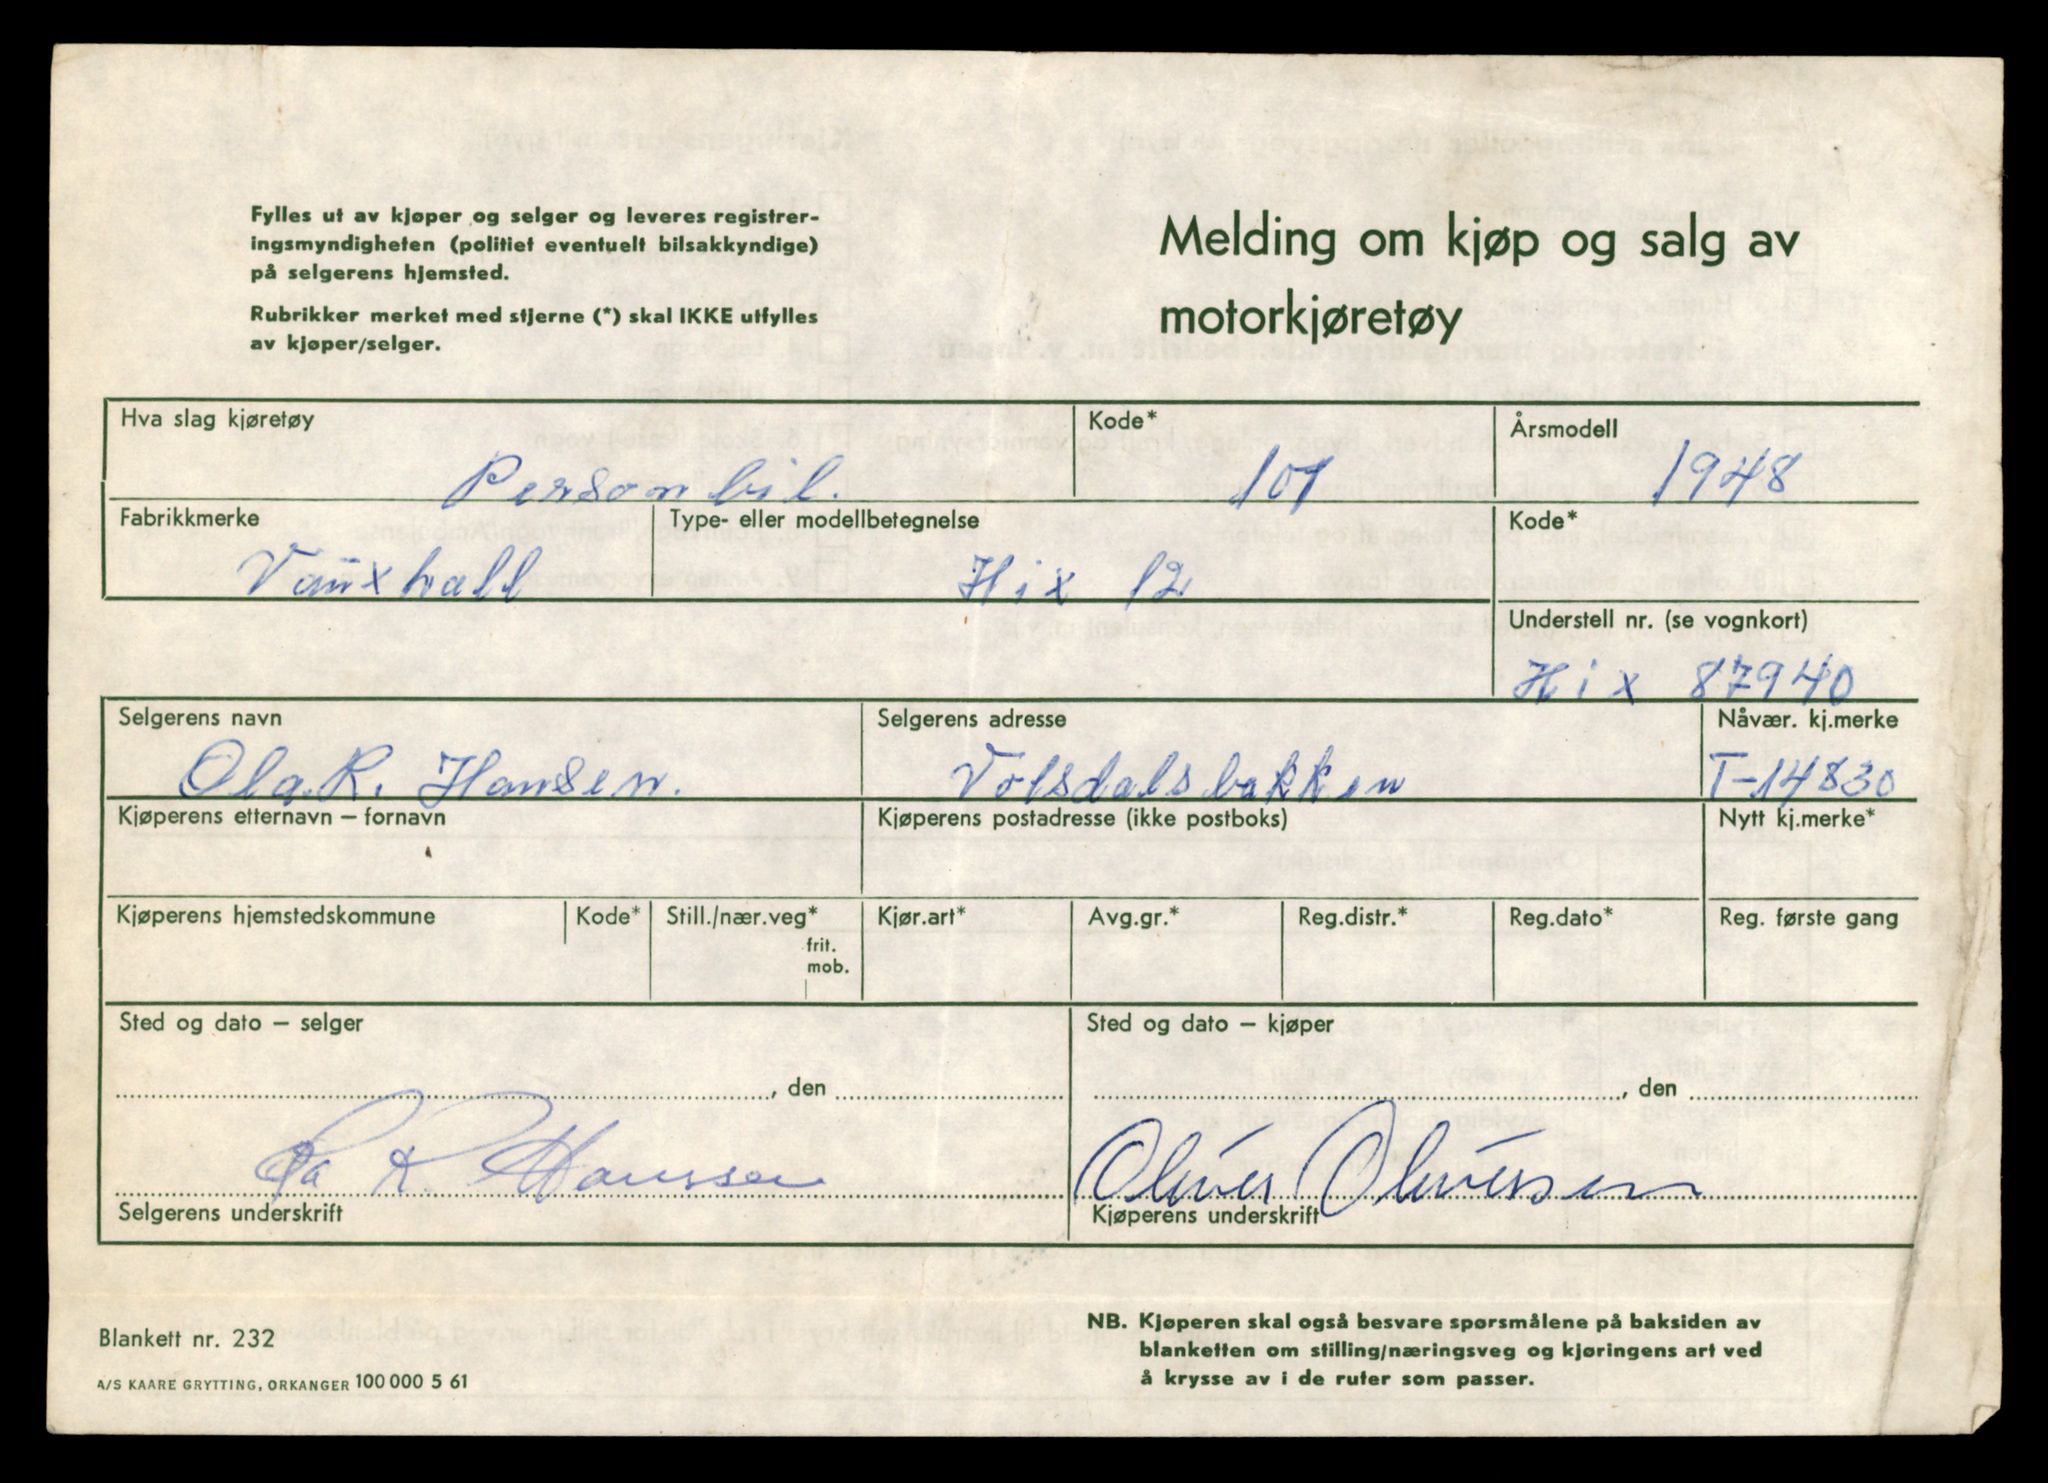 Fylles ut av kjøper og selger og leveres registrer-
ingsmyndigheten (politiet eventuelt bilsakkyndige)
på selgerens hjemsted.
Rubrikker merket med stjerne (*) skal IKKE utfylles
av kjøper/selger.
Melding om kjøp og salg av
motorkjøretøy
Hva slag kjøretøy
Kode*
Årsmodell
Personbil.
101
1948
Fabrikkmerke
Type- eller modellbetegnelse
Kode*
Vauxhall
Hix 12
Understell nr. (se vognkort)
Hix 87940
Selgerens navn
Selgerens adresse
Nåvær. kj.merke
Ola. R. Hansen.
Volsdalsbakken
T-14830
Kjøperens etternavn – fornavn
Kjøperens postadresse (ikke postboks)
Nytt kj.merke*
Kjøperens hjemstedskommune
Kode*
Still./nær.veg*
frit.
mob.
Kjør.art*
Avg.gr.*
Reg.distr.*
Reg.dato*
Reg. første gang
Sted og dato – selger
Sted og dato – kjøper
, den
, den
Ola R. Hanssen
Oliver Oliversen
Selgerens underskrift
Kjøperens underskrift
Blankett nr. 232
A/S KAARE GRYTTING, ORKANGER 100 000 5 61
NB. Kjøperen skal også besvare spørsmålene på baksiden av
blanketten om stilling/næringsveg og kjøringens art ved
å krysse av i de ruter som passer.